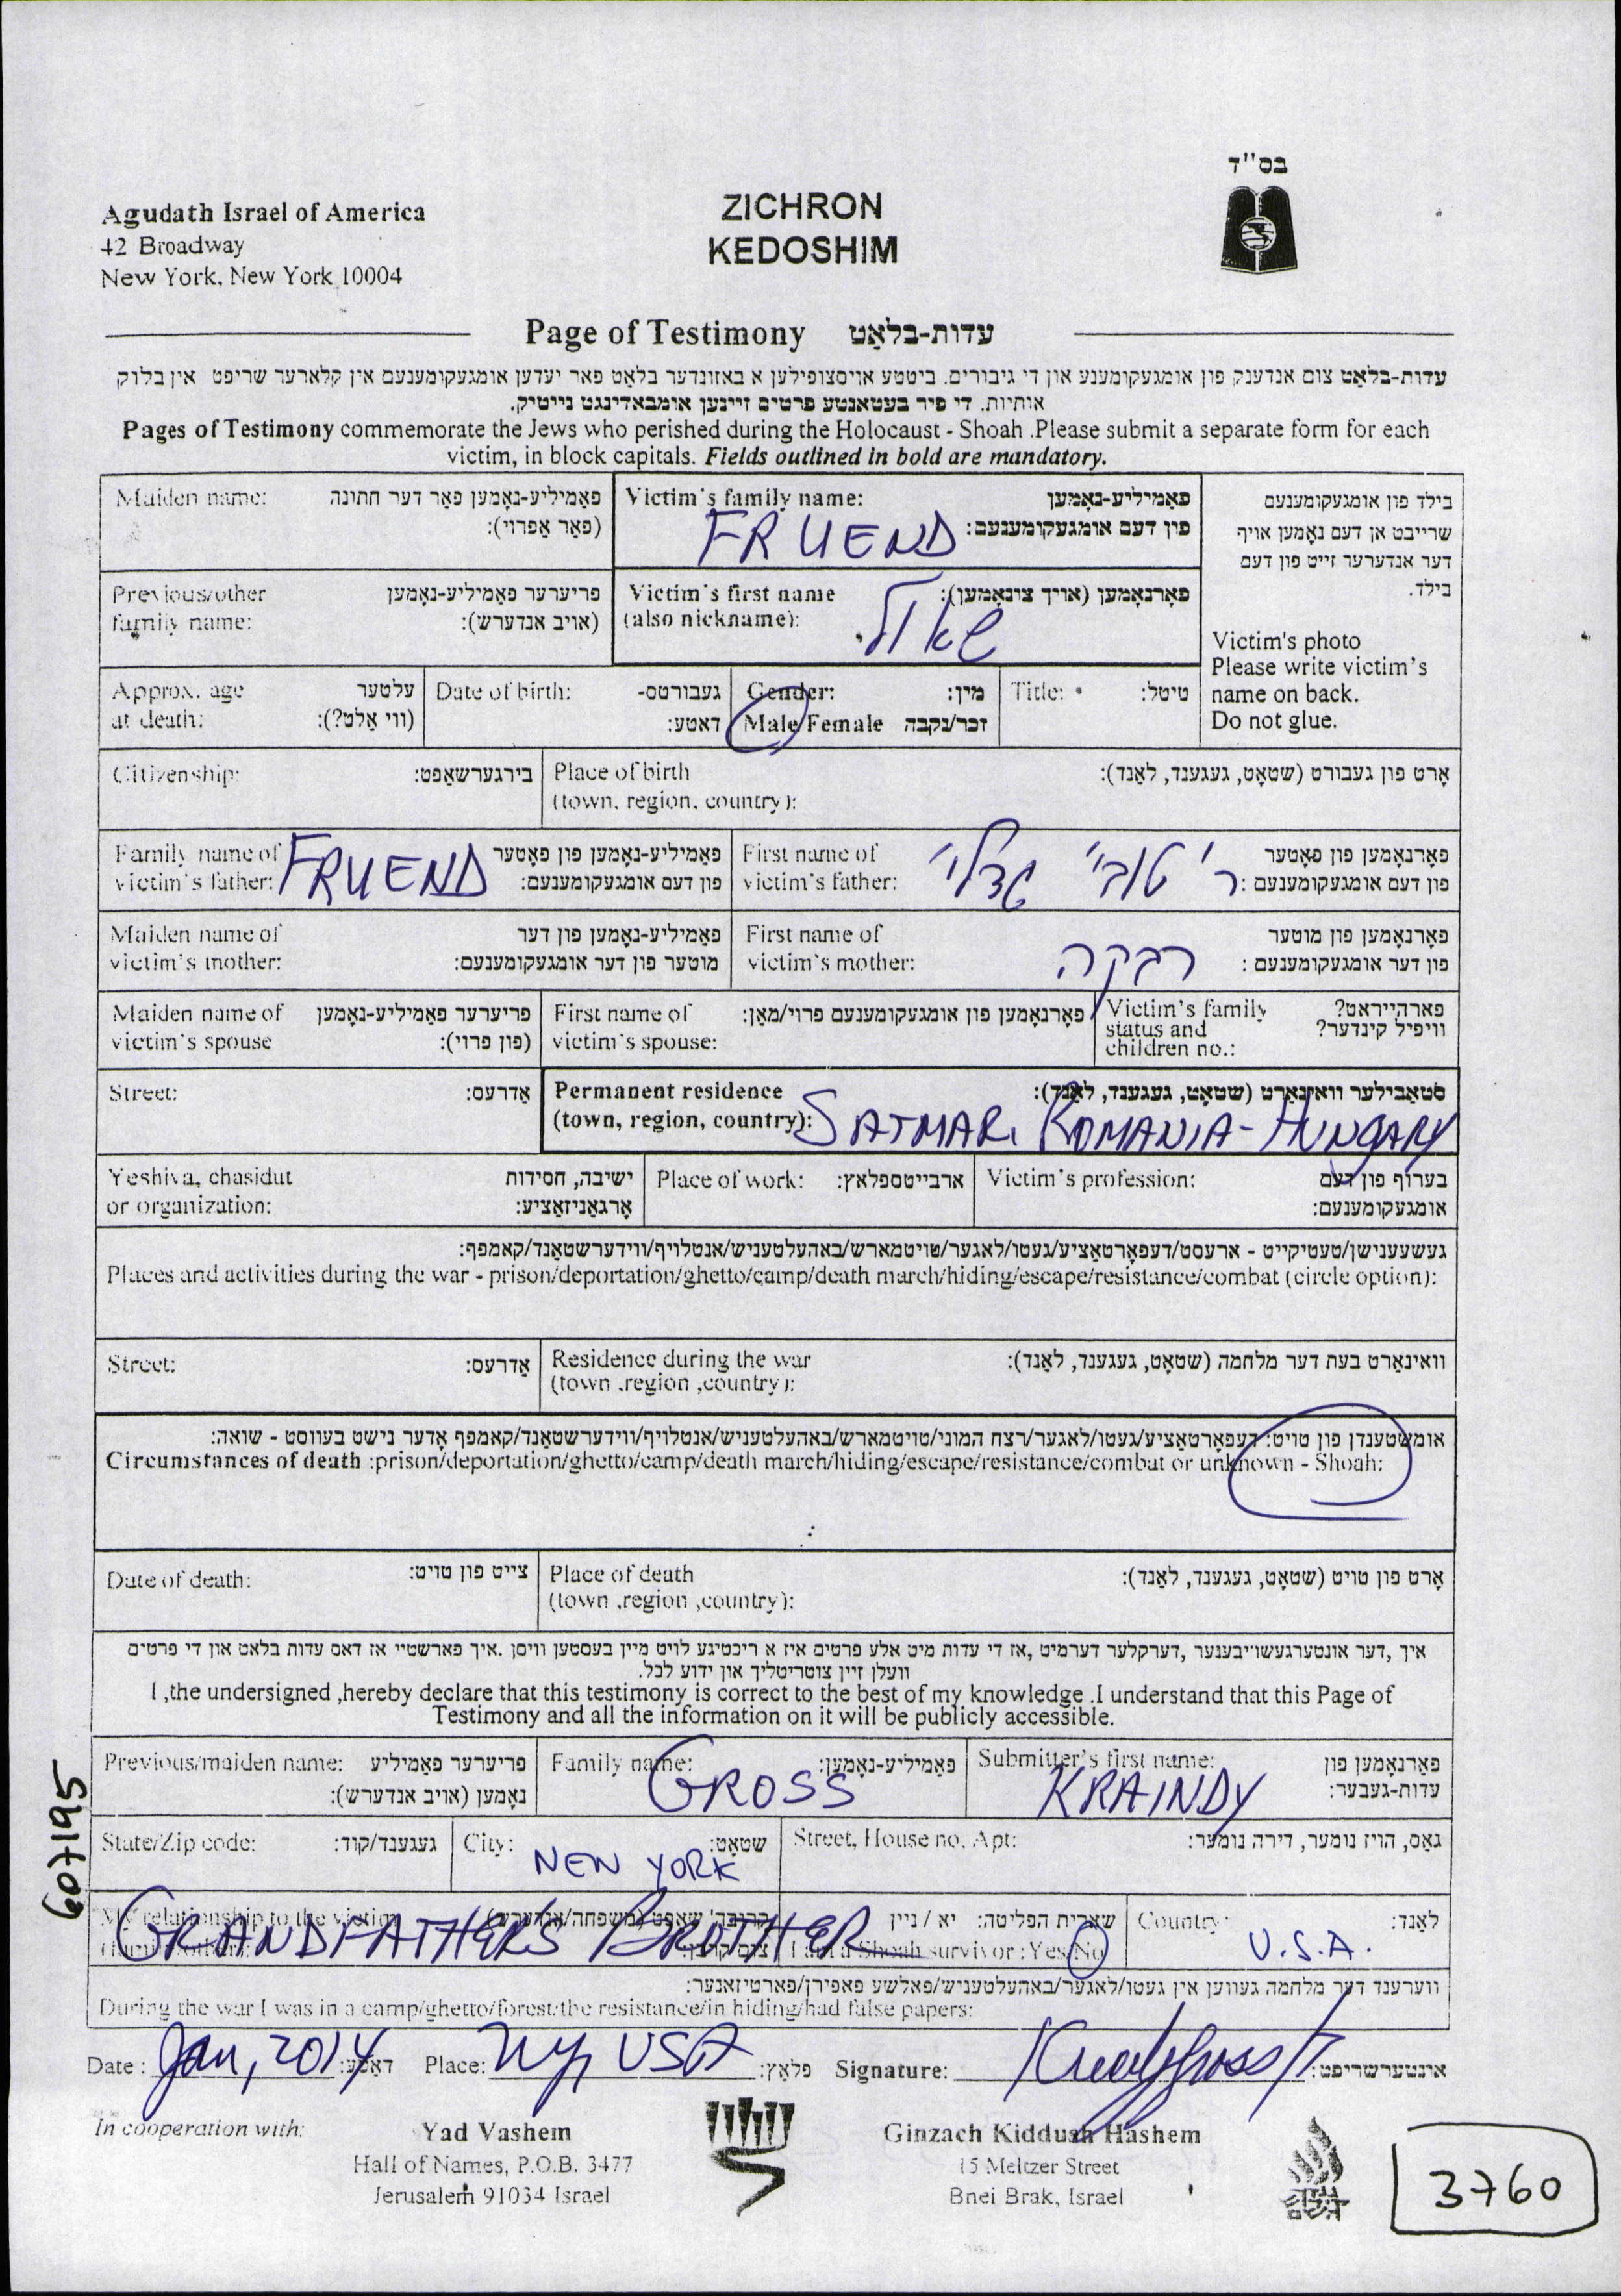 בס"ד
Agudath Israel of America
42 Broadway
New York, New York 10004
ZICHRON
KEDOSHIM
Page of Testimony עדות-בלאַט
עדות-בלאַט צום אנדענק פון אומגעקומענע און די גיבורים. ביטטע אויסצופילען א באזונדער בלאט פאר יעדען אומגעקומענעם אין קלארער שריפט אין בלוק
אותיות. די פיר בעטאנטע פרטים זיינען אומבאדינגט נייטיק.
Pages of Testimony commemorate the Jews who perished during the Holocaust - Shoah .Please submit a separate form for each
victim, in block capitals. Fields outlined in bold are mandatory.
Maiden name: פאַמיליע-נאָמען פאַר דער חתונה
(פאַר אַפרוי):
Victim's family name: פאַמיליע-נאָמען
פון דעם אומגעקומענעם:
FRUEND
בילד פון אומגעקומענעם
שרייבט אן דעם נאָמען אויף
דער אנדערער זייט פון דעם
בילד.
Victim's photo
Please write victim's
name on back.
Do not glue.
Previous/other פריערער פאַמיליע-נאָמען
family name: (אויב אנדערש):
Victim's first name פאָרנאָמען (אויך צונאָמען):
(also nickname):
שאול
Approx. age עלטער
at death: (ווי אַלט?):
Date of birth: געבורטס-
דאטע:
Gender: מין:
Male/Female זכר/נקבה
Title: טיטל:
Citizenship: בירגערשאַפט:
Place of birth אָרט פון געבורט (שטאָט, געגענד, לאַנד):
(town, region, country):
Family name of פאַמיליע-נאָמען פון פאָטער
victim's father: פון דעם אומגעקומענעם:
FRUEND
First name of פאָרנאָמען פון פאָטער
victim's father: פון דעם אומגעקומענעם:
ר' טובי' גדלי'
Maiden name of פאַמיליע-נאָמען פון דער
victim's mother: מוטער פון דער אומגעקומענעם:
First name of פאָרנאָמען פון מוטער
victim's mother: פון דער אומגעקומענעם:
רבקה
Maiden name of פריערער פאַמיליע-נאָמען
victim's spouse (פון פרוי):
First name of פאָרנאָמען פון אומגעקומענעם פרוי/מאַן:
victim's spouse:
Victim's family פארהייראט?
status and וויפיל קינדער?
children no.:
Street: אַדרעס:
Permanent residence סטאַבילער וואוינאָרט (שטאָט, געגענד, לאַנד):
(town, region, country):
SATMAR, ROMANIA-HUNGARY
Yeshiva, chasidut ישיבה, חסידות
or organization: אָרגאַניזאַציע:
Place of work: ארבייטספלאץ:
Victim's profession: בערוף פון דעם
אומגעקומענעם:
געשעענישן/טעטיקייט - ארעסט/דעפאָרטאַציע/געטו/לאגער/טויטמארש/באהעלטעניש/אנטלויף/ווידערשטאַנד/קאמפף:
Places and activities during the war - prison/deportation/ghetto/camp/death march/hiding/escape/resistance/combat (circle option):
Street: אַדרעס:
Residence during the war וואוינאָרט בעת דער מלחמה (שטאָט, געגענד, לאַנד):
(town ,region ,country):
אומשטענדן פון טויט: דעפאָרטאַציע/געטו/לאגער/רצח המוני/טויטמארש/באהעלטעניש/אנטלויף/ווידערשטאַנד/קאמפף אָדער נישט בעוווסט - שואה:
Circumstances of death :prison/deportation/ghetto/camp/death march/hiding/escape/resistance/combat or unknown - Shoah:
Date of death: צייט פון טויט:
Place of death אָרט פון טויט (שטאָט, געגענד, לאַנד):
(town ,region ,country):
איך ,דער אונטערגעשריבענער ,דערקלער דערמיט ,אז די עדות מיט אלע פרטים איז א ריכטיגע לויט מיין בעסטען וויסן .איך פארשטיי אז דאס עדות בלאט און די פרטים
וועלן זיין צוטריטליך און ידוע לכל.
I ,the undersigned ,hereby declare that this testimony is correct to the best of my knowledge .I understand that this Page of
Testimony and all the information on it will be publicly accessible.
Previous/maiden name: פריערער פאַמיליע
נאָמען (אויב אנדערש):
Family name: פאַמיליע-נאָמען:
GROSS
Submitter's first name: פאָרנאָמען פון
עדות-געבער:
KRAINDY
State/Zip code: געגענד/קוד:
City: שטאָט:
NEW YORK
Street, House no, Apt: גאס, הויז נומער, דירה נומער:
My relationship to the victim
GRANDFATHER'S BROTHER
שארית הפליטה: יא / ניין
I am a Shoah survivor :Yes/No
Country: לאַנד:
U.S.A.
ווערענד דער מלחמה געווען אין געטו/לאגער/באהעלטעניש/פאלשע פאפירן/פארטיזאנער:
During the war I was in a camp/ghetto/forest/the resistance/in hiding/had false papers:
Date : Jan, 2014 דאַטע: Place: NY, USA פלאַץ: Signature: אונטערשריפט:
In cooperation with:
Yad Vashem
Hall of Names, P.O.B. 3477
Jerusalem 91034 Israel
Ginzach Kiddush Hashem
15 Meltzer Street
Bnei Brak, Israel
3760
607195